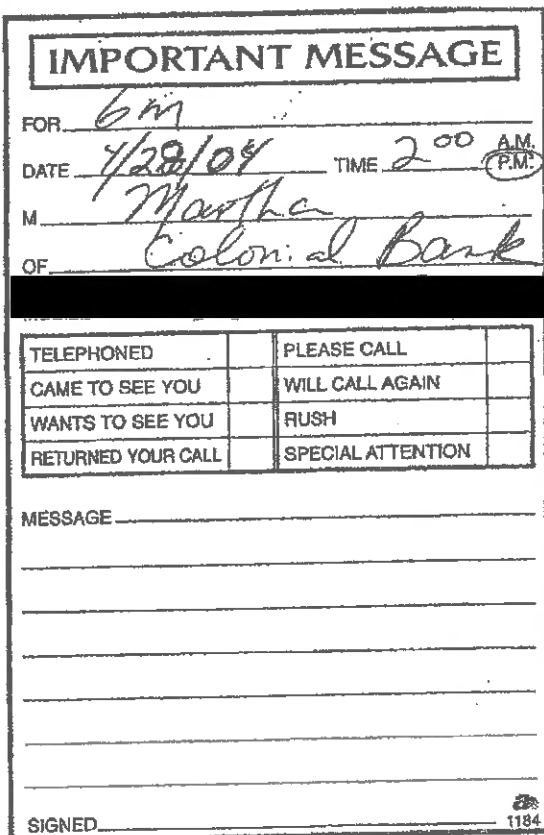 IMPORTANT MESSAGE
FOR GM
DATE 4/28/04 TIME 2 00 A.M.
P.M.
M Martha
OF Colonial Bank
TELEPHONED PLEASE CALL
CAME TO SEE YOU WILL CALL AGAIN
WANTS TO SEE YOU RUSH
RETURNED YOUR CALL SPECIAL ATTENTION
MESSAGE
SIGNED
1184